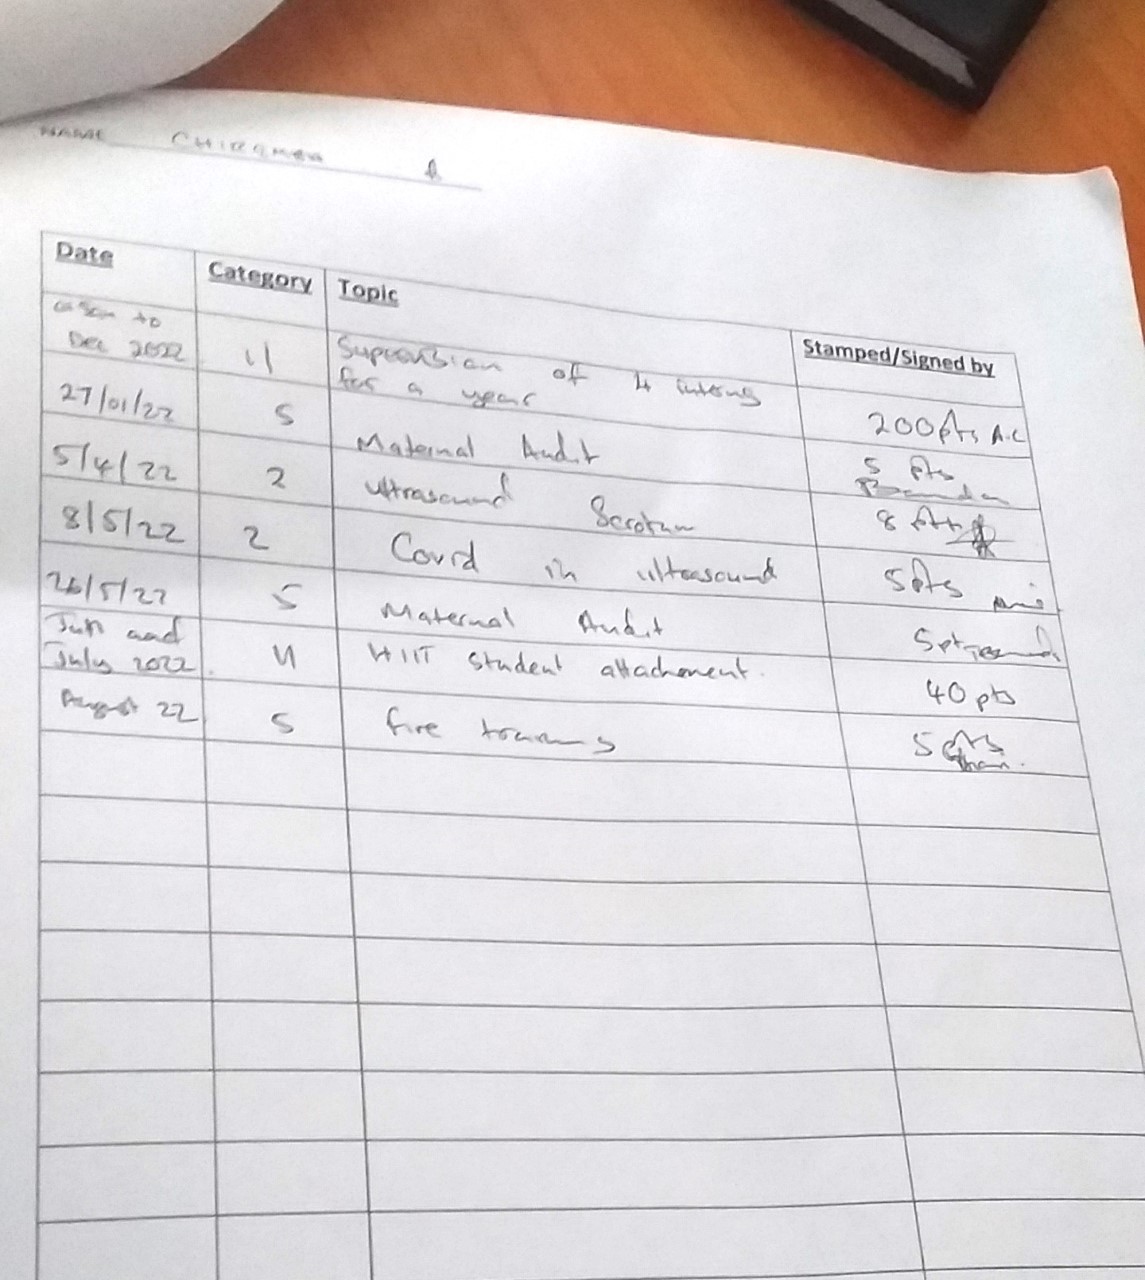 NAME
Date Category Topic Stamped/Signed by
to
Dec 2022 11 Supervision of 4 interns
for a year 200pts A.C
27/01/22 5 Maternal Audit 5 pts
5/4/22 2 ultrasound Scrotum 8 pts
8/5/22 2 Covid in ultrasound 5pts
26/5/22 5 Maternal Audit 5pts
Jun and
July 2022 11 HIIT student attachment. 40 pts
August 22 5 fire training 5 pts